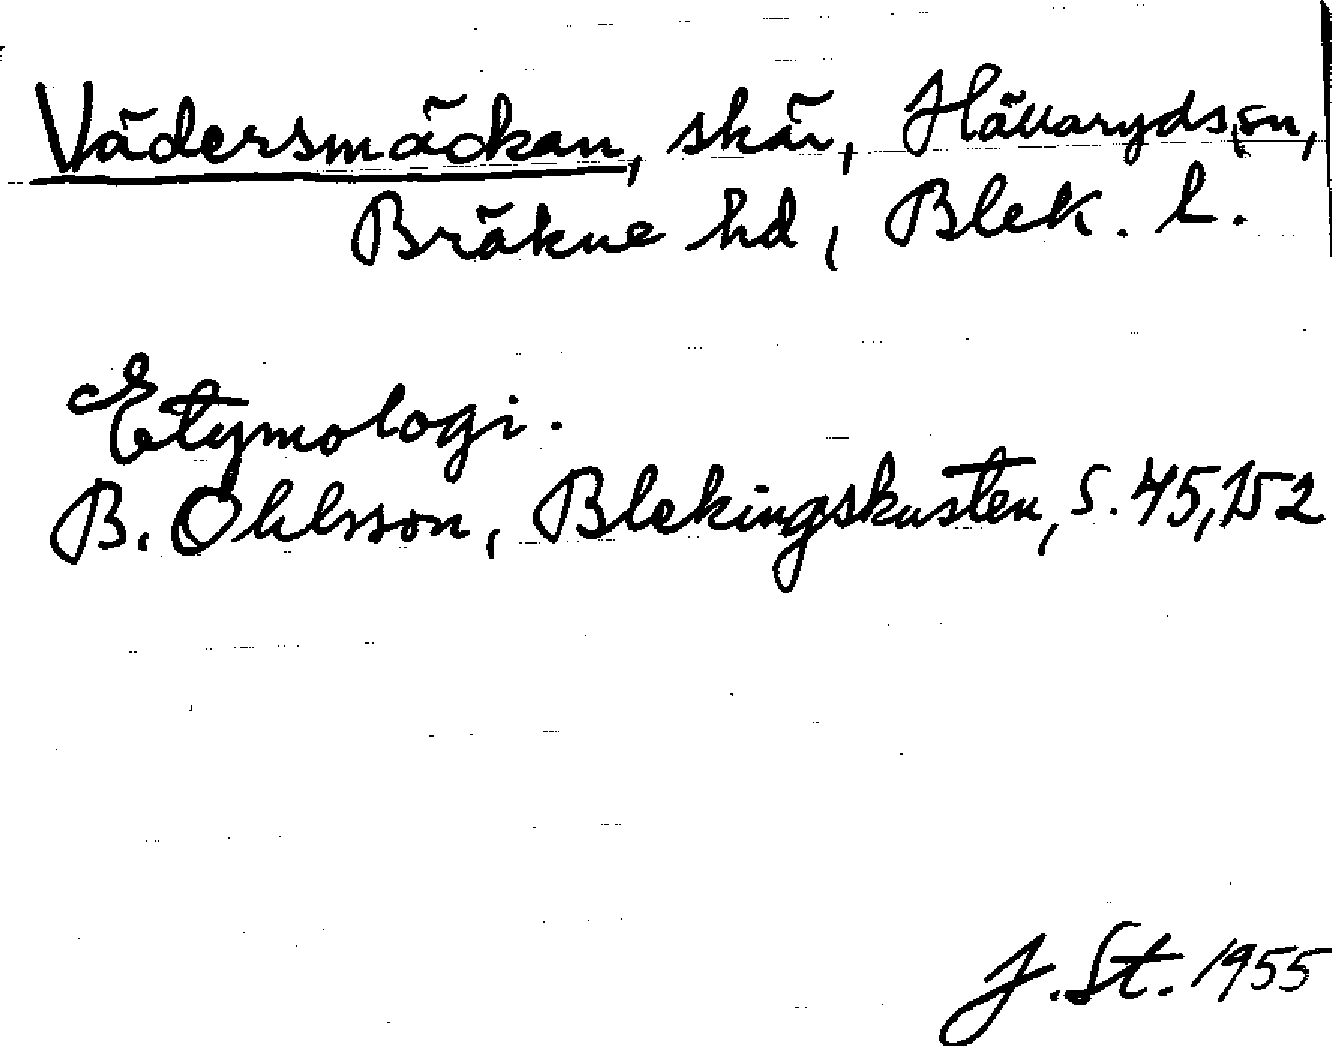 Vädersmäckan, skär, Hällaryds sn,
Bräkne hd, Blek. l.
Etymologi.
B. Ohlsson, Blekingskusten, s. 45, 152
J. St. 1955